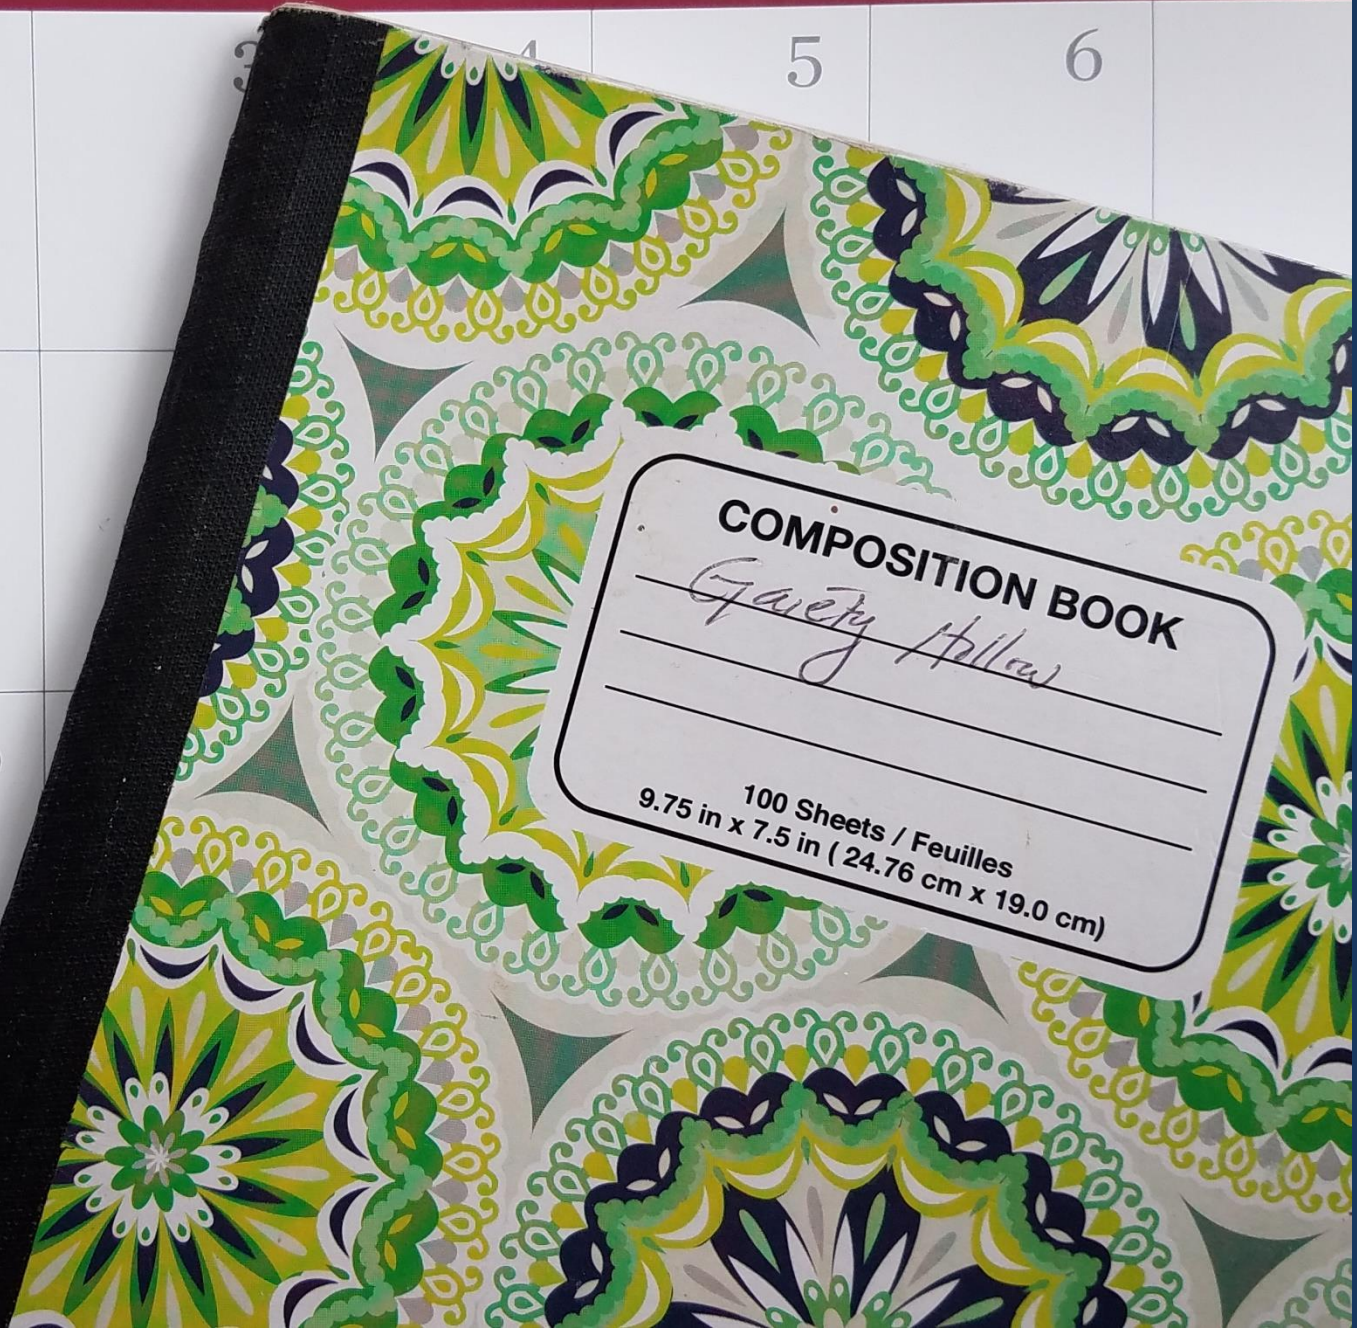 3 4 5 6
COMPOSITION BOOK
Gaiety Hollow
100 Sheets / Feuilles
9.75 in x 7.5 in ( 24.76 cm x 19.0 cm)